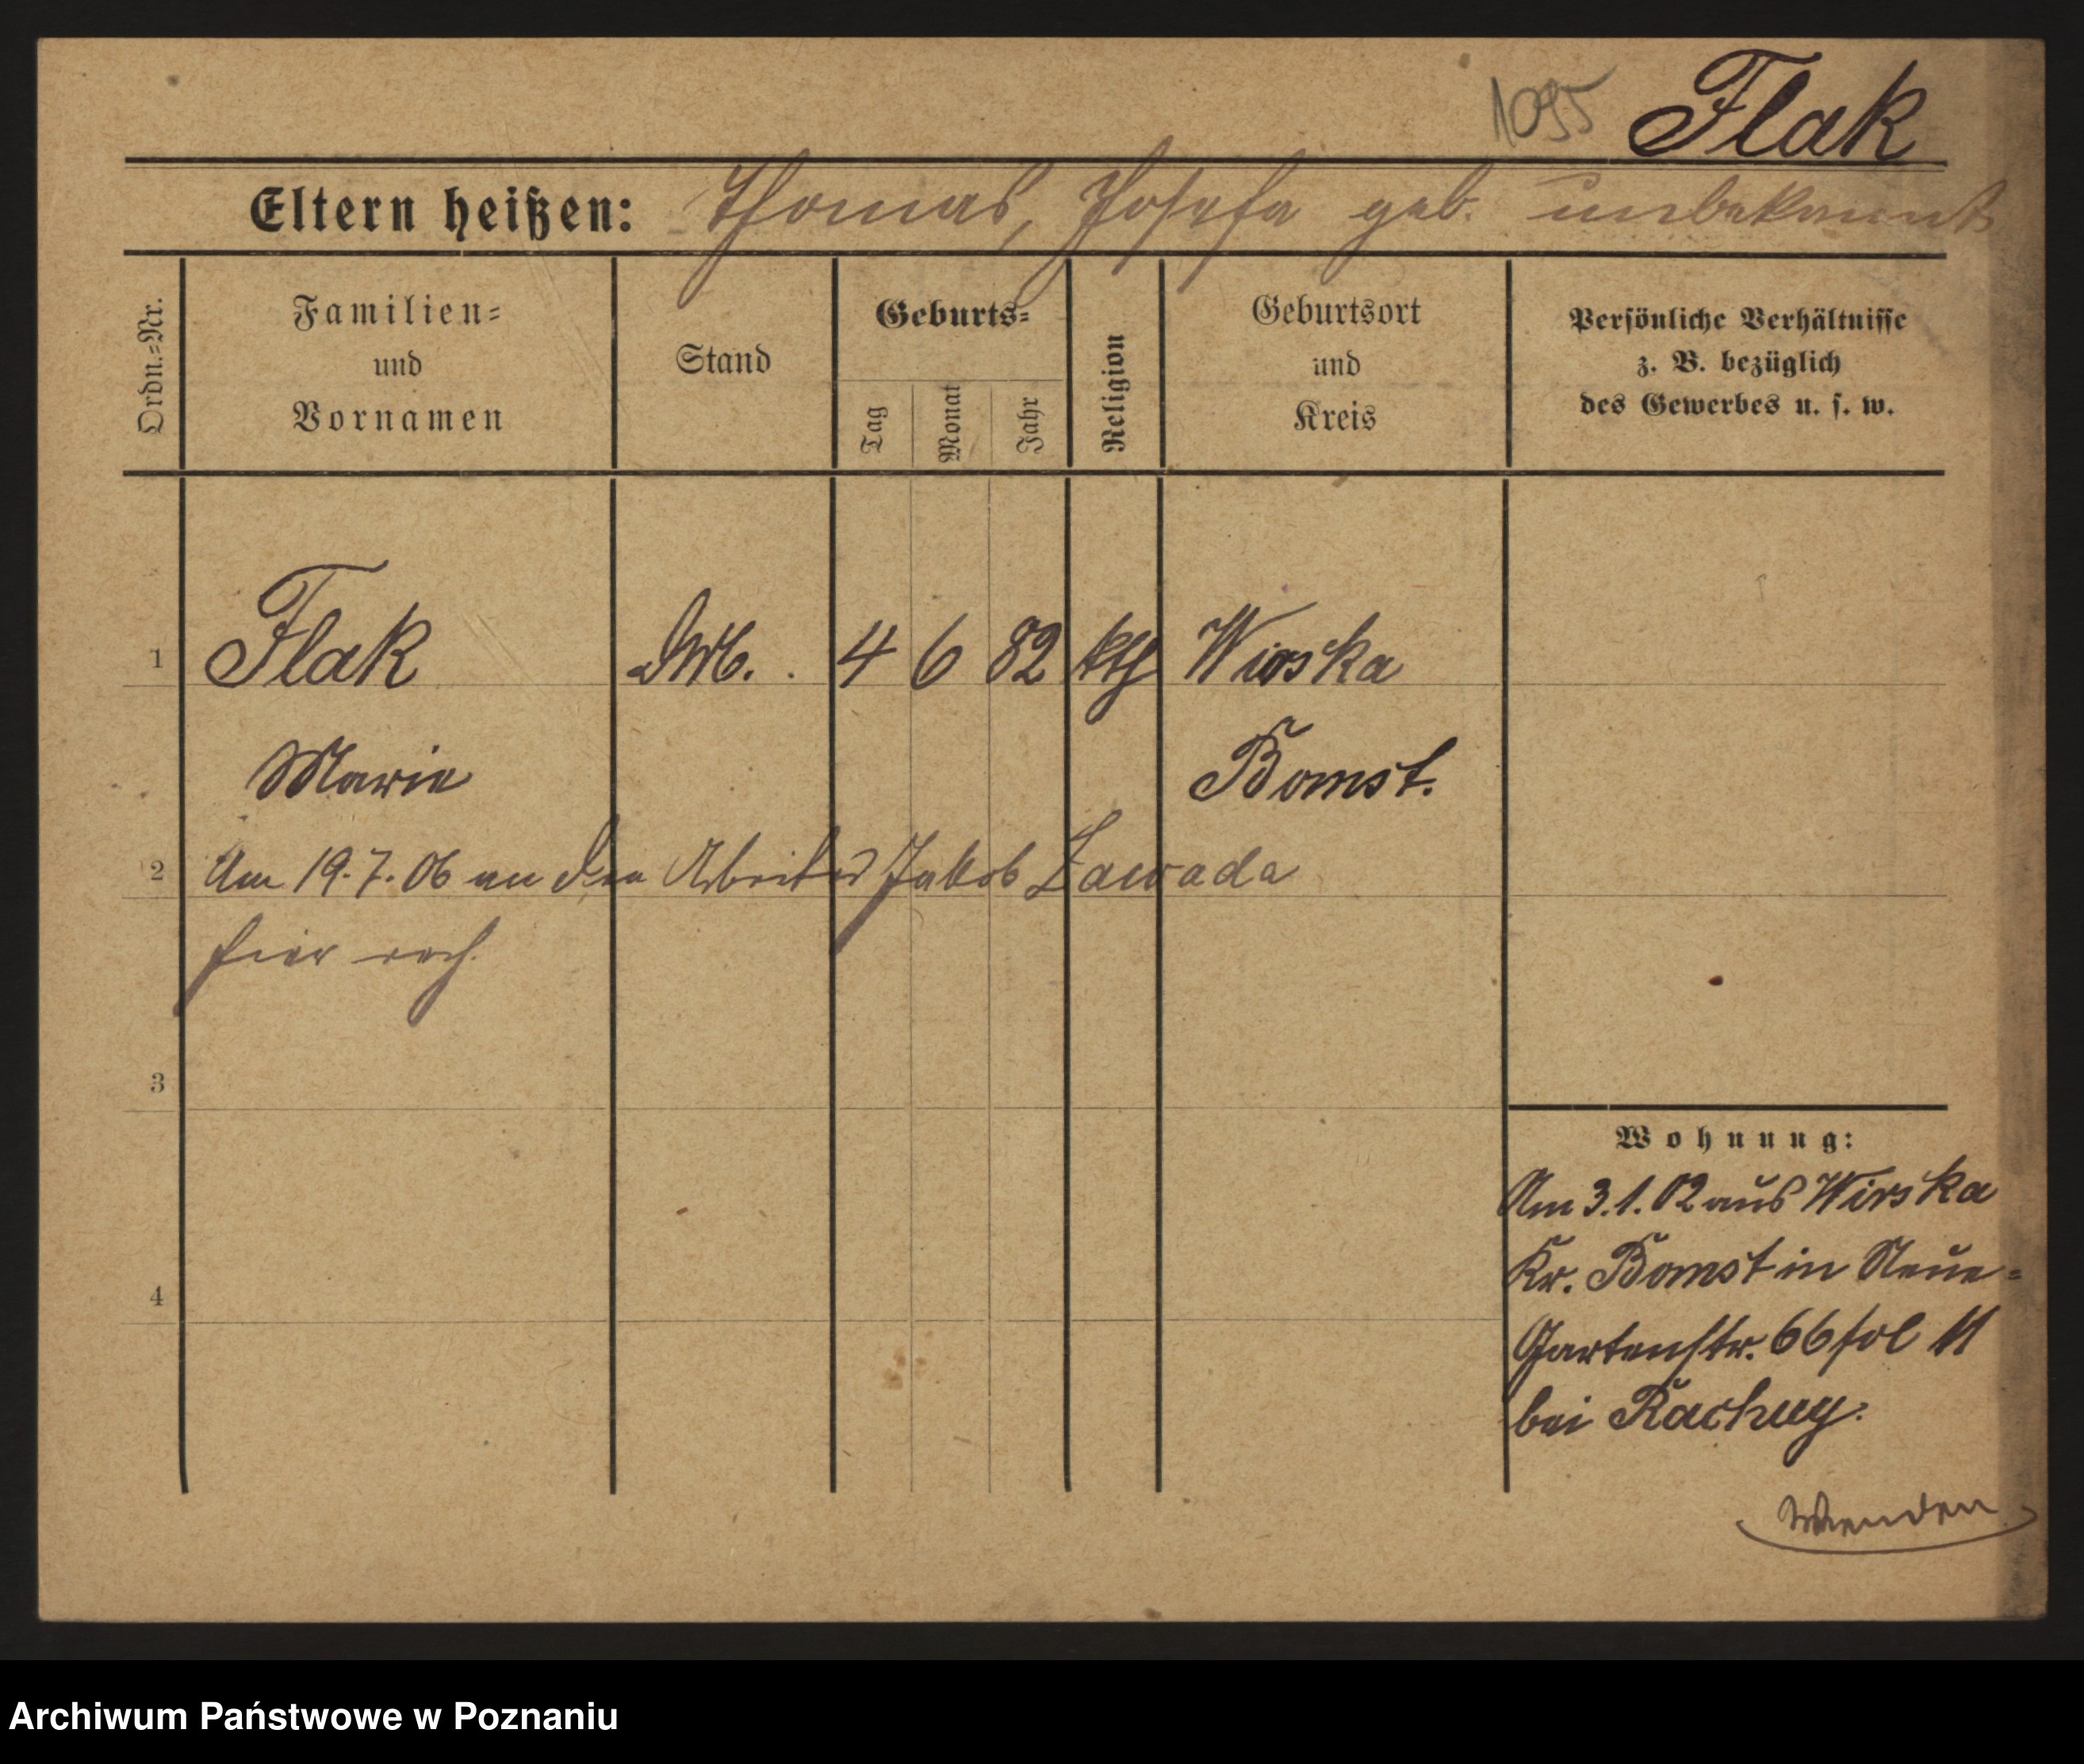 1095 Flak
Eltern heißen: Thomas, Josefa geb. unbekannt
Ordn.=Nr.
Familien=
und
Vornamen
Stand
Geburts=
Tag
Monat
Jahr
Religion
Geburtsort
und
Kreis
Persönliche Verhältnisse
z. B. bezüglich
des Gewerbes u. s. w.
1 Flak 4 6 82 kth Wioska
Marie Bomst.
2 Am 19.7.06 an den Arbeiter Jakob Zawada
hier verh.
3
4
Wohnung:
Am 3.1.02 aus Wioska
Kr. Bomst in Neue=
Gartenstr. 66 fol 11
bei
Wenden
Archiwum Państwowe w Poznaniu